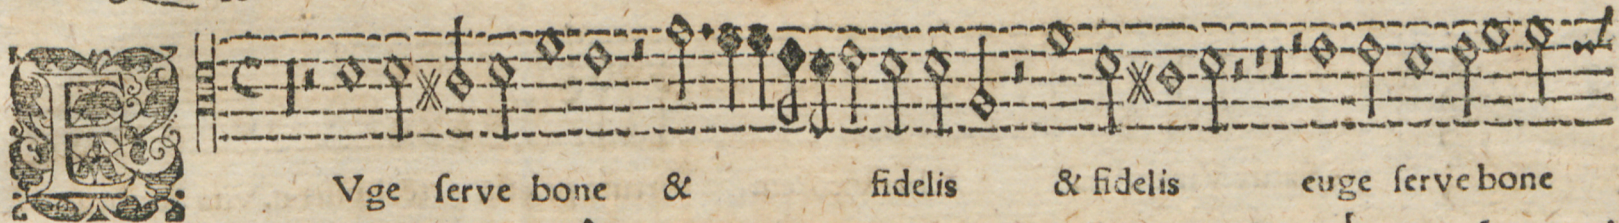 EVge ſerve bone & fidelis & fidelis euge ſerve bone